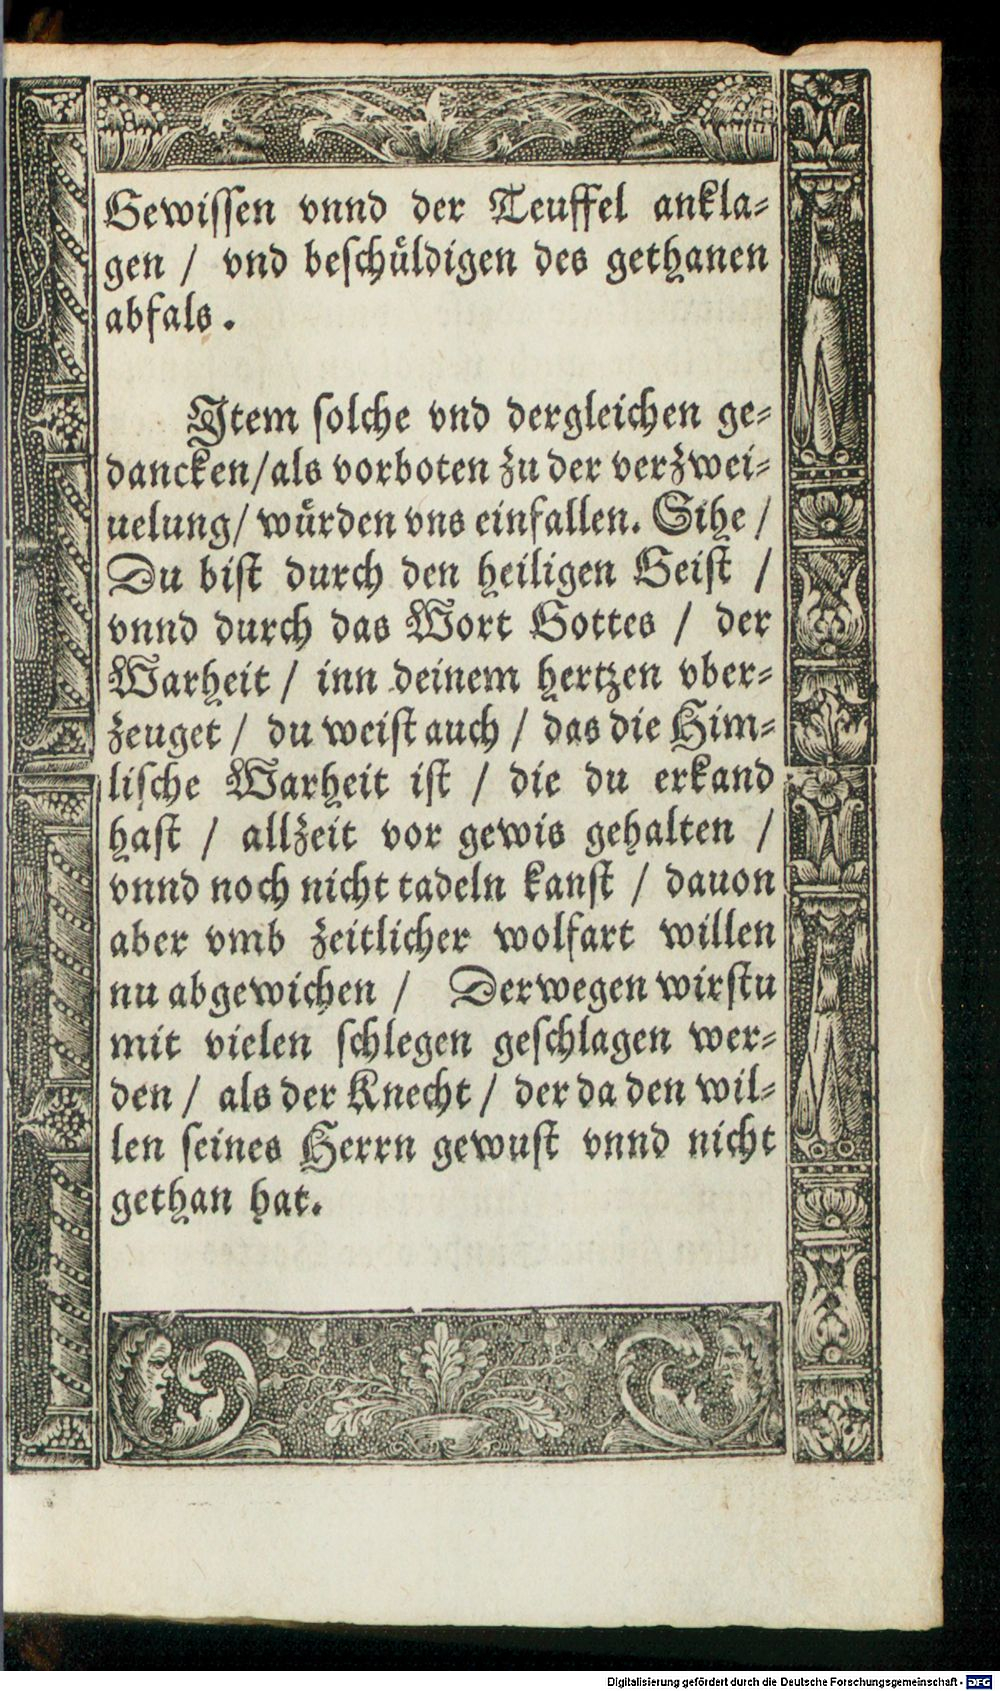 Gewissen vnnd der Teuffel ankla-
gen / vnd beschůldigen des gethanen
abfals.
Item solche vnd dergleichen ge-
dancken/als vorboten zu der verzwei-
uelung/ wůrden vns einfallen. Sihe /
Du bist durch den heiligen Geist /
vnnd durch das Wort Gottes / der
Warheit / inn deinem hertzen vber-
zeuget / du weist auch / das die Him-
lische Warheit ist / die du erkand
hast / allzeit vor gewis gehalten /
vnnd noch nicht tadeln kanst / dauon
aber vmb zeitlicher wolfart willen
nu abgewichen / Derwegen wirstu
mit vielen schlegen geschlagen wer-
den / als der Knecht / der da den wil-
len seines Herrn gewust vnnd nicht
gethan hat.
Digitalisierung gefördert durch die Deutsche Forschungsgemeinschaft - DFG